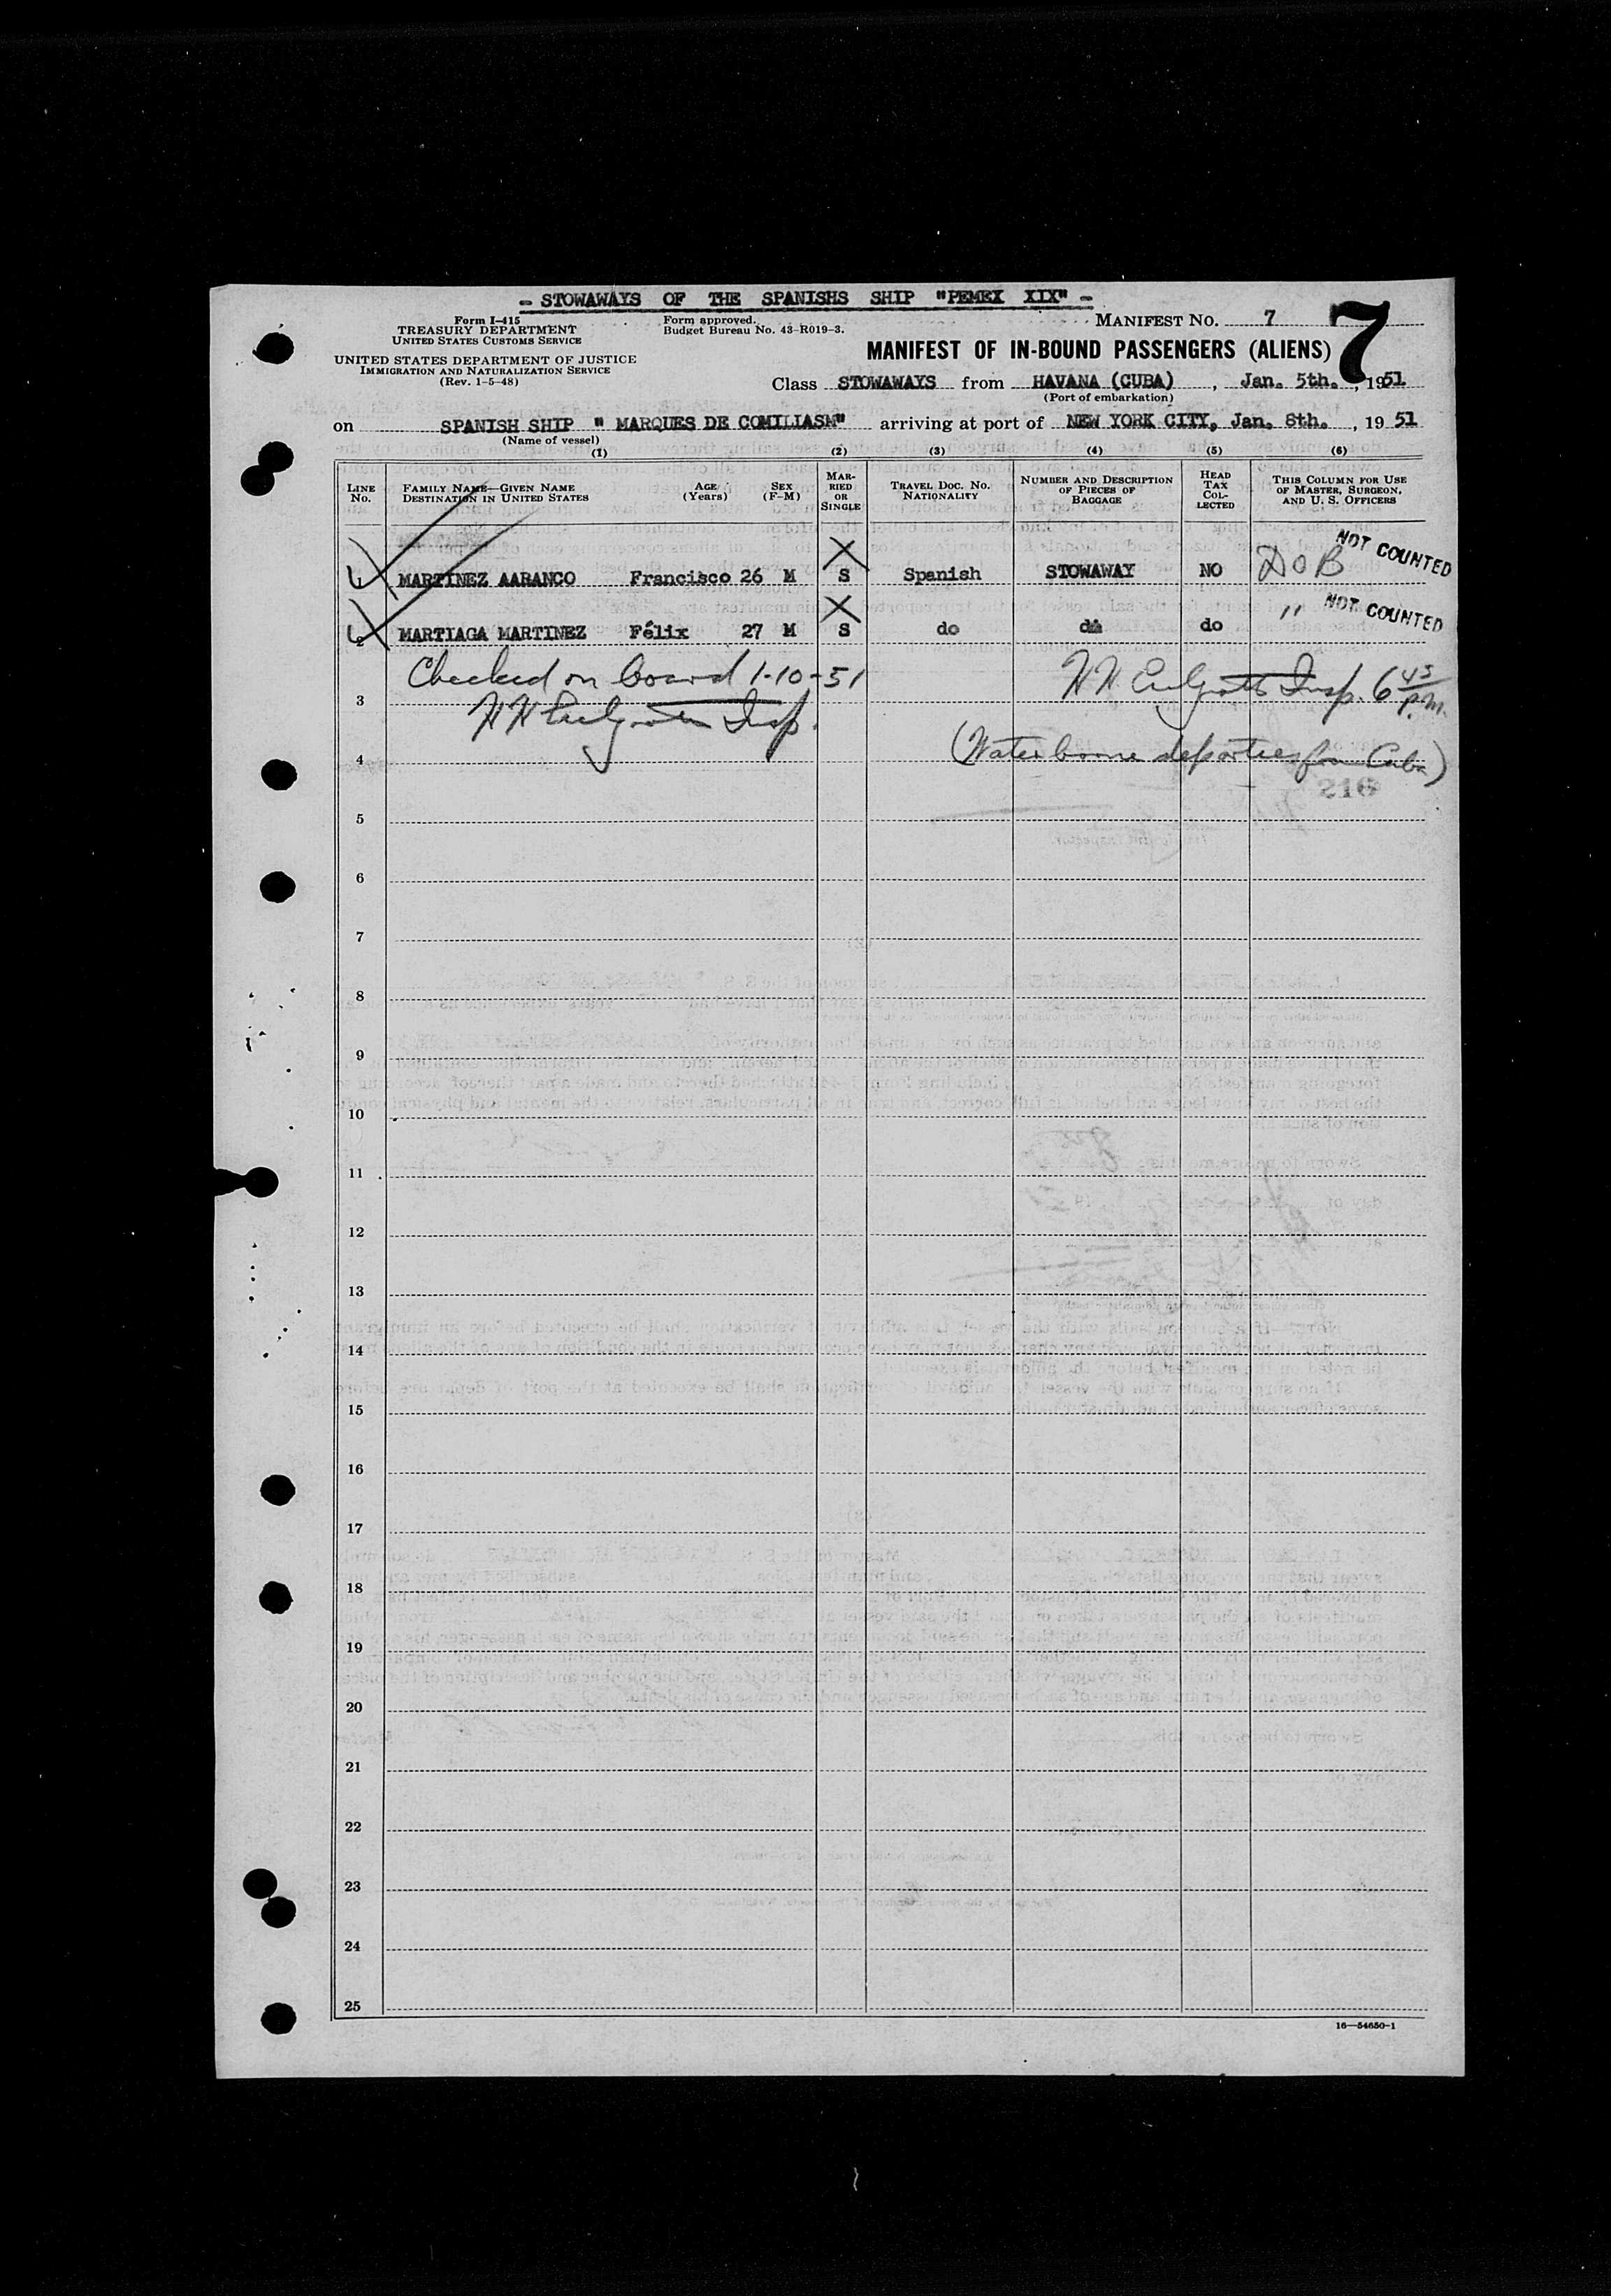 - STOWAWAYS OF THE SPANISHS SHIP "PEMEX XIX" -
Form I-415
TREASURY DEPARTMENT
UNITED STATES CUSTOMS SERVICE
Form approved.
Budget Bureau No. 43-R019-3.
MANIFEST NO. 7
7
UNITED STATES DEPARTMENT OF JUSTICE
IMMIGRATION AND NATURALIZATION SERVICE
(Rev. 1-5-48)
MANIFEST OF IN-BOUND PASSENGERS (ALIENS)
Class STOWAWAYS from HAVANA (CUBA), Jan. 5th., 1951
(Port of embarkation)
on SPANISH SHIP " MARQUES DE COMILIASM" arriving at port of NEW YORK CITY, Jan. 8th., 19 51
(Name of vessel)
(1) (2) (3) (4) (5) (6)
LINE NO. FAMILY NAME—GIVEN NAME DESTINATION IN UNITED STATES AGE (Years) SEX (F-M) MARRIED OR SINGLE TRAVEL DOC. NO. NATIONALITY NUMBER AND DESCRIPTION OF PIECES OF BAGGAGE HEAD TAX COLLECTED THIS COLUMN FOR USE OF MASTER, SURGEON, AND U. S. OFFICERS
1 MARTINEZ AARANCO Francisco 26 M S Spanish STOWAWAY NO DOB NOT COUNTED
2 MARTIAGA MARTINEZ Félix 27 M S do do do " NOT COUNTED
Checked on board 1-10-51
Insp. 6 45 P.M.
3
Insp.
4 (Water borne deportees from Cuba)
216
5
6
7
8
9
10
11
12
13
14
15
16
17
18
19
20
21
22
23
24
25
16—54650-1